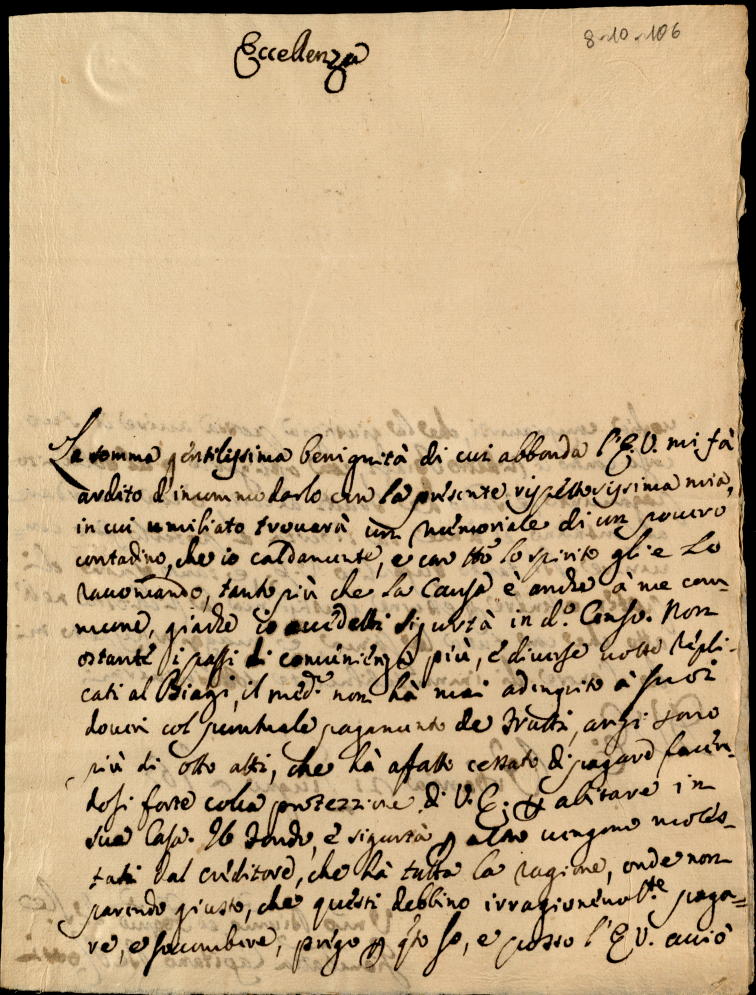 8-10-106
Eccellenza
La somma gentilissima benignità di cui abbonda l'E.V. mi fà
ardito d'incommodarlo con la presente rispettosissima mia,
in cui umiliato trovarà un memoriale di un povero
contadino, che io caldamente, e con tto lo spirito gli e lo
raccomando, tanto più che la Causa è anche à me com-
mune, giache io accedetti sigurtà in do. Censo. Non
ostante i passi di convenienza più, e diverse volte repli-
cati al Biagi, il med.o non hà mai adempito à suoi
doveri col puntuale pagamento de frutti, anzi sono
più di otto anni, che hà affatto cessato di pagare facen-
dosi forte colla protezzione di V.E. p abitare in
sua Casa. Il Fondo, e sigurtà p altro vengono moles-
tati dal creditore, che hà tutta la ragione, onde non
parendo giusto, che questi debbino irragionevol.te paga=
re, e socumbere, prego p qto so, e posso l'E.V. acciò